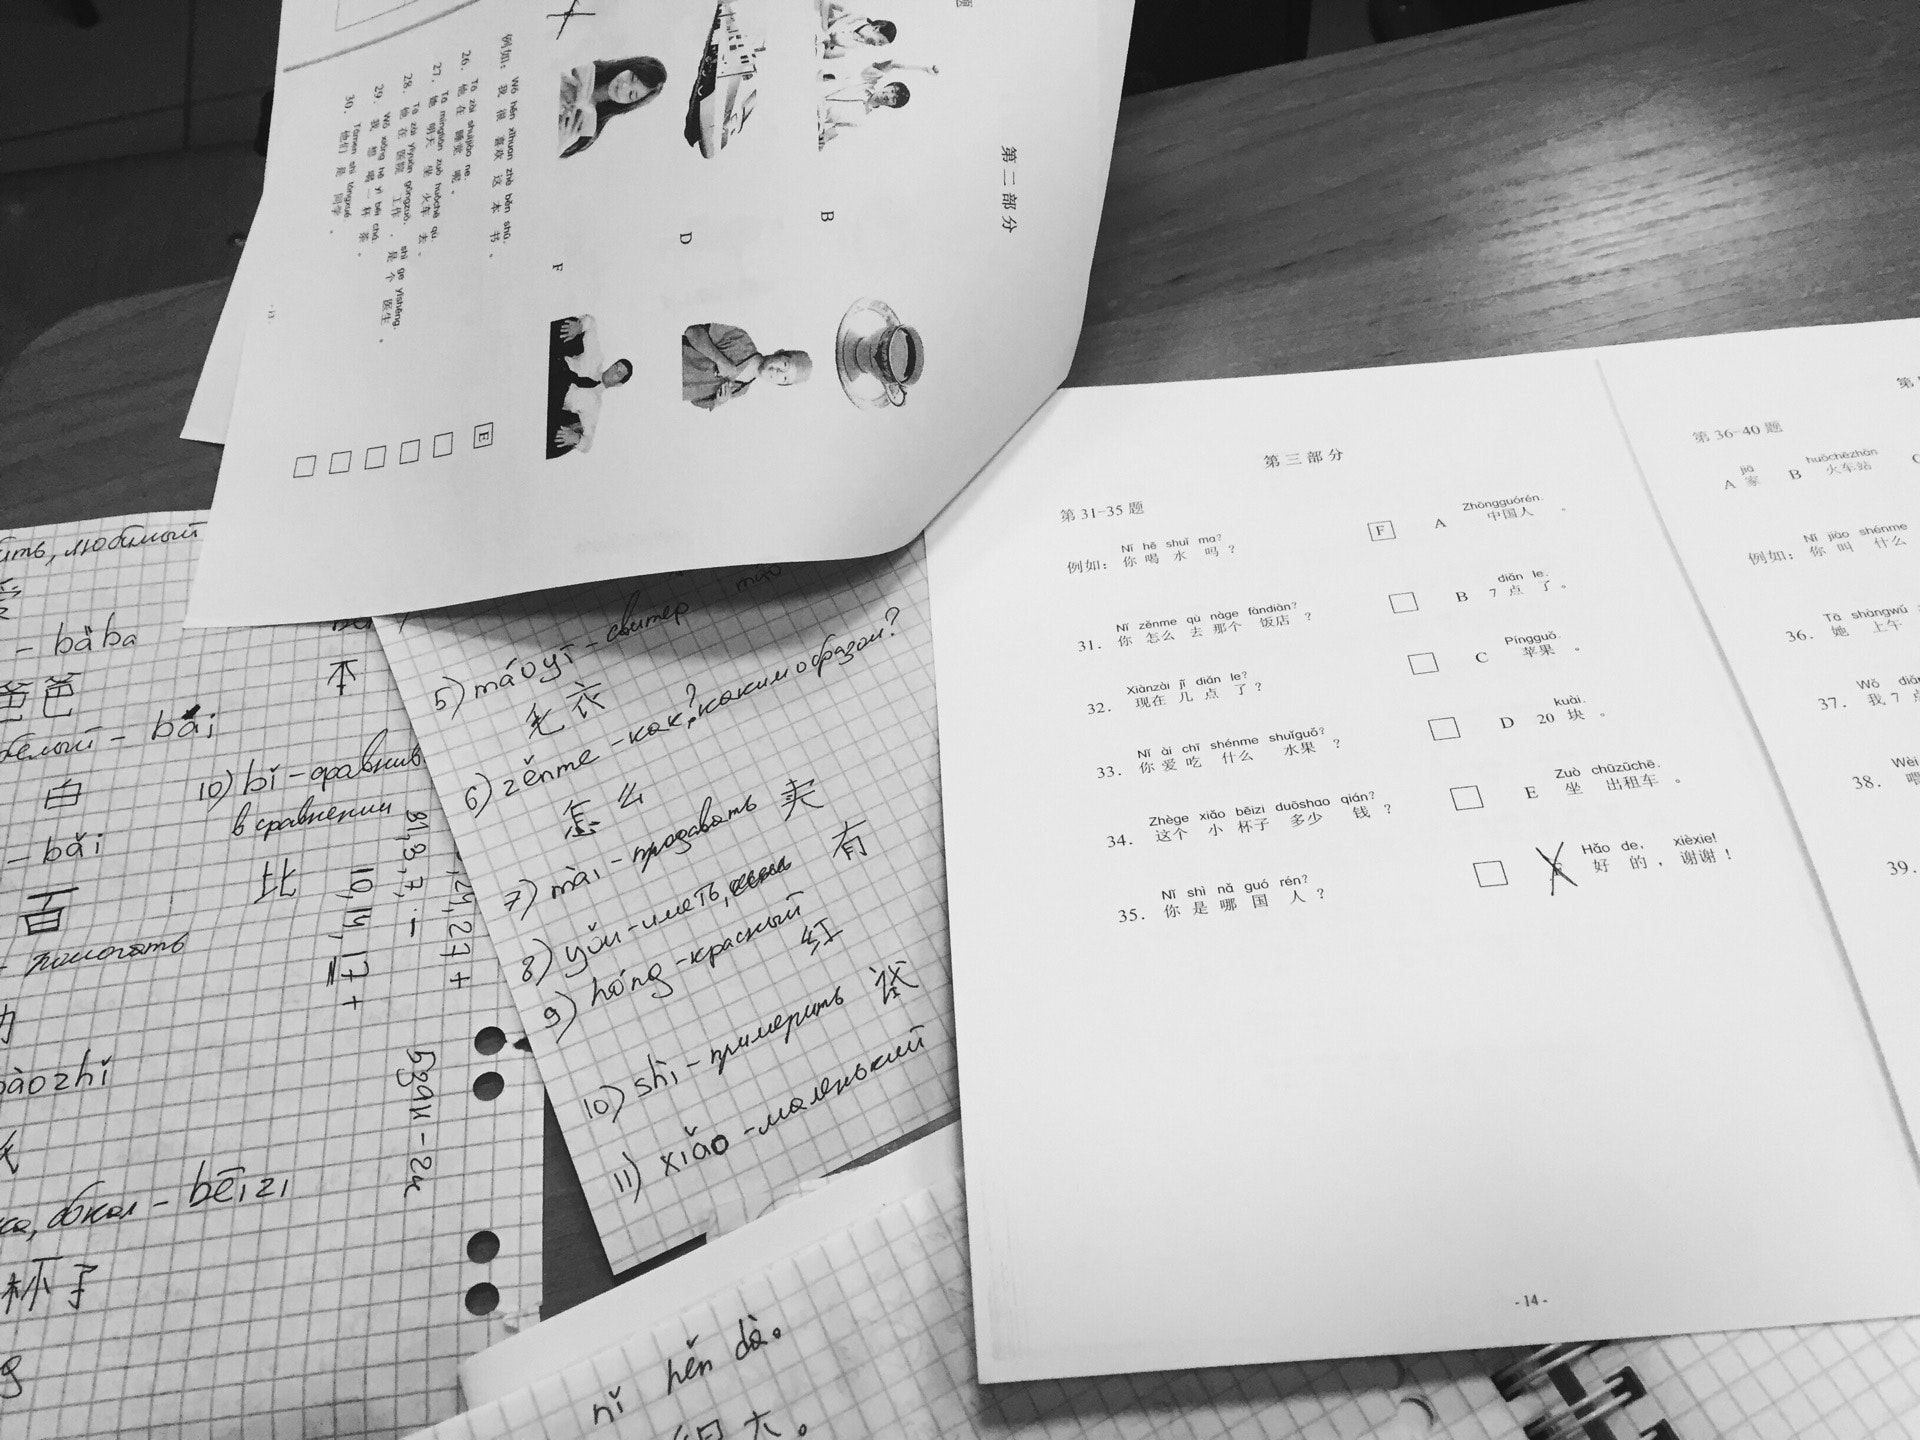 第二部分
B
D
F
E
Wǒ hěn xǐhuan zhè běn shū.
例如：我 很 喜欢 这 本 书 。
Tā zài shuìjiào ne.
26. 他 在 睡觉 呢 。
Tā míngtiān zuò huǒchē qù.
27. 她 明天 坐 火车 去 。
Tā zài yīyuàn gōngzuò, shì ge yīshēng.
28. 他 在 医院 工作 ，是 个 医生 。
Wǒ xiǎng hē yì bēi chá.
29. 我 想 喝 一 杯 茶 。
Tāmen shì tóngxué.
30. 他们 是 同学 。
любимый
- bàba
爸爸
белый - bái
白
- bǎi
百
- помогать
бокал - bēizi
杯子
本
10) bǐ - сравнив.
в сравнении
比
5) máoyī - свитер
毛衣
6) zěnme - как? каким образом?
怎么
7) mài - продавать 卖
8) yǒu - иметь, 有
9) hóng - красный
红
10) shì - примерить 试
11) xiǎo - маленький
nǐ hěn dà。
很大。
第三部分
第 31-35 题
Nǐ hē shuǐ ma?
例如：你 喝 水 吗 ？
F
Zhōngguórén.
A 中国人 。
Nǐ zěnme qù nàge fàndiàn?
31. 你 怎么 去 那个 饭店 ？
diǎn le.
B 7 点 了 。
Xiànzài jǐ diǎn le?
32. 现在 几 点 了 ？
Píngguǒ.
C 苹果 。
Nǐ ài chī shénme shuǐguǒ?
33. 你 爱 吃 什么 水果 ？
kuài.
D 20 块 。
Zhège xiǎo bēizi duōshao qián?
34. 这个 小 杯子 多少 钱 ？
Zuò chūzūchē.
E 坐 出租车 。
Nǐ shì nǎ guó rén?
35. 你 是 哪 国 人 ？
Hǎo de, xièxie!
F 好 的 ，谢谢 ！
- 14 -
第 36-40 题
jiā
A 家
huǒchēzhàn
B 火车站
Nǐ jiào shénme
例如：你 叫 什么
Tā shàngwǔ
36. 她 上午
Wǒ
37. 我 7
Wèi
38. 喂
39.